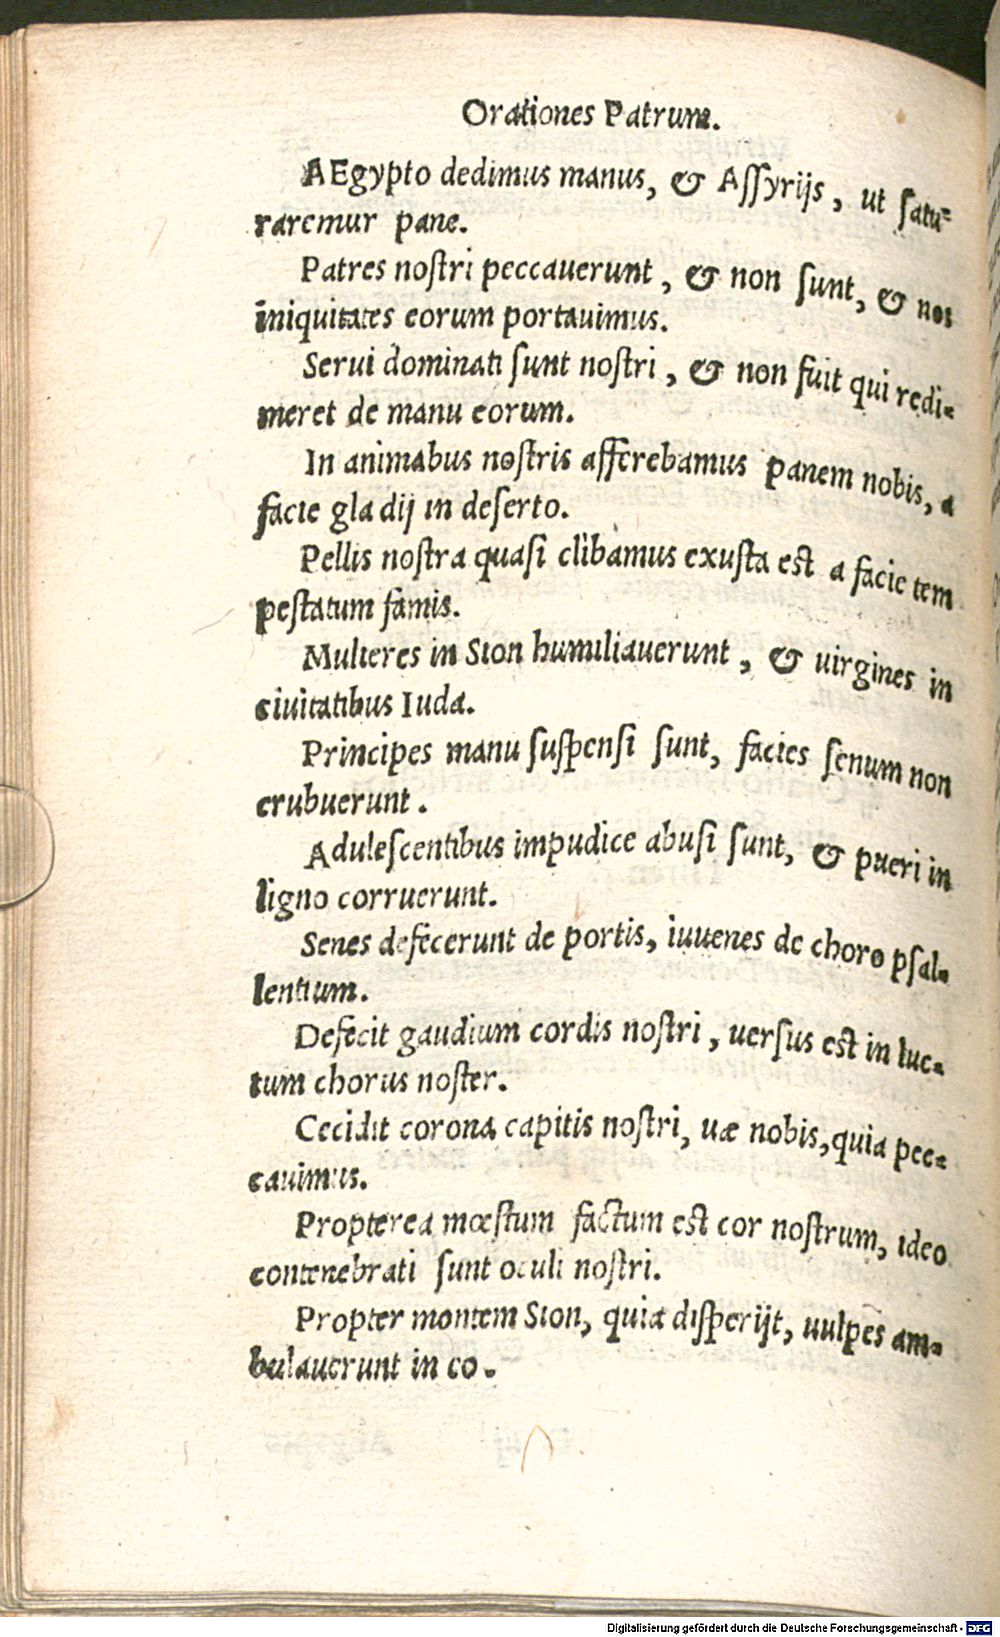 Orationes Patrum.
AEgypto dedimus manus, & Aſſyrijs, ut ſatu-
raremur pane.
Patres noſtri peccauerunt, & non ſunt, & nos
iniquitates eorum portauimus.
Serui dominati ſunt noſtri, & non fuit qui redi-
meret de manu eorum.
In animabus noſtris afferebamus panem nobis, a
facie gladij in deſerto.
Pellis noſtra quaſi clibamus exuſta eſt a facie tem
peſtatum famis.
Mulieres in Sion humiliauerunt, & uirgines in
ciuitatibus Iuda.
Principes manu ſuſpenſi ſunt, facies ſenum non
erubuerunt.
Aduleſcentibus impudice abuſi ſunt, & pueri in
ligno corruerunt.
Senes defecerunt de portis, iuuenes de choro pſal-
lentium.
Defecit gaudium cordis noſtri, uerſus eſt in luc-
tum chorus noſter.
Cecidit corona capitis noſtri, uæ nobis, quia pec-
cauimus.
Propterea mœſtum factum eſt cor noſtrum, ideo
contenebrati ſunt oculi noſtri.
Propter montem Sion, quia diſperijt, uulpes am-
bulauerunt in eo.
Digitalisierung gefördert durch die Deutsche Forschungsgemeinschaft - DFG